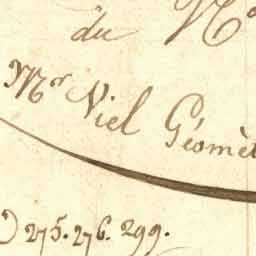 du
Mr Niel Géomèt
275. 276. 299.